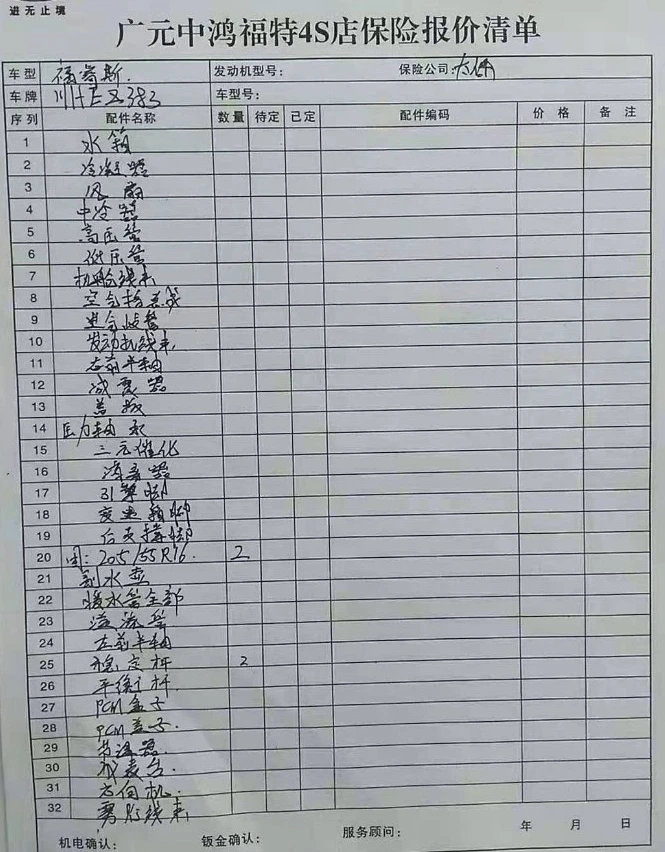 进无止境
广元中鸿福特4S店保险报价清单
车型 福睿斯 发动机型号： 保险公司：
车牌 车型号：
序列 配件名称 数量 待定 已定 配件编码 价格 备注
1 水箱
2 冷凝器
3 风扇
4 中冷器
5 高压管
6 低压管
7 机舱线束
8 空气格总成
9 进气歧管
10 发动机线束
11 右前半轴
12 减震器
13
14 压力轴承
15 三元催化
16 消音器
17 引擎脚
18 变速箱脚
19 后支撑脚
20 205/55R16. 2
21 副水壶
22 暖水管全部
23
24 左前半轴
25 稳定杆 2
26 平衡杆
27 PCM盒子
28 PCM盖子.
29 节温器.
30 仪表台.
31 方向机.
32 雾灯线束
机电确认： 钣金确认： 服务顾问： 年 月 日